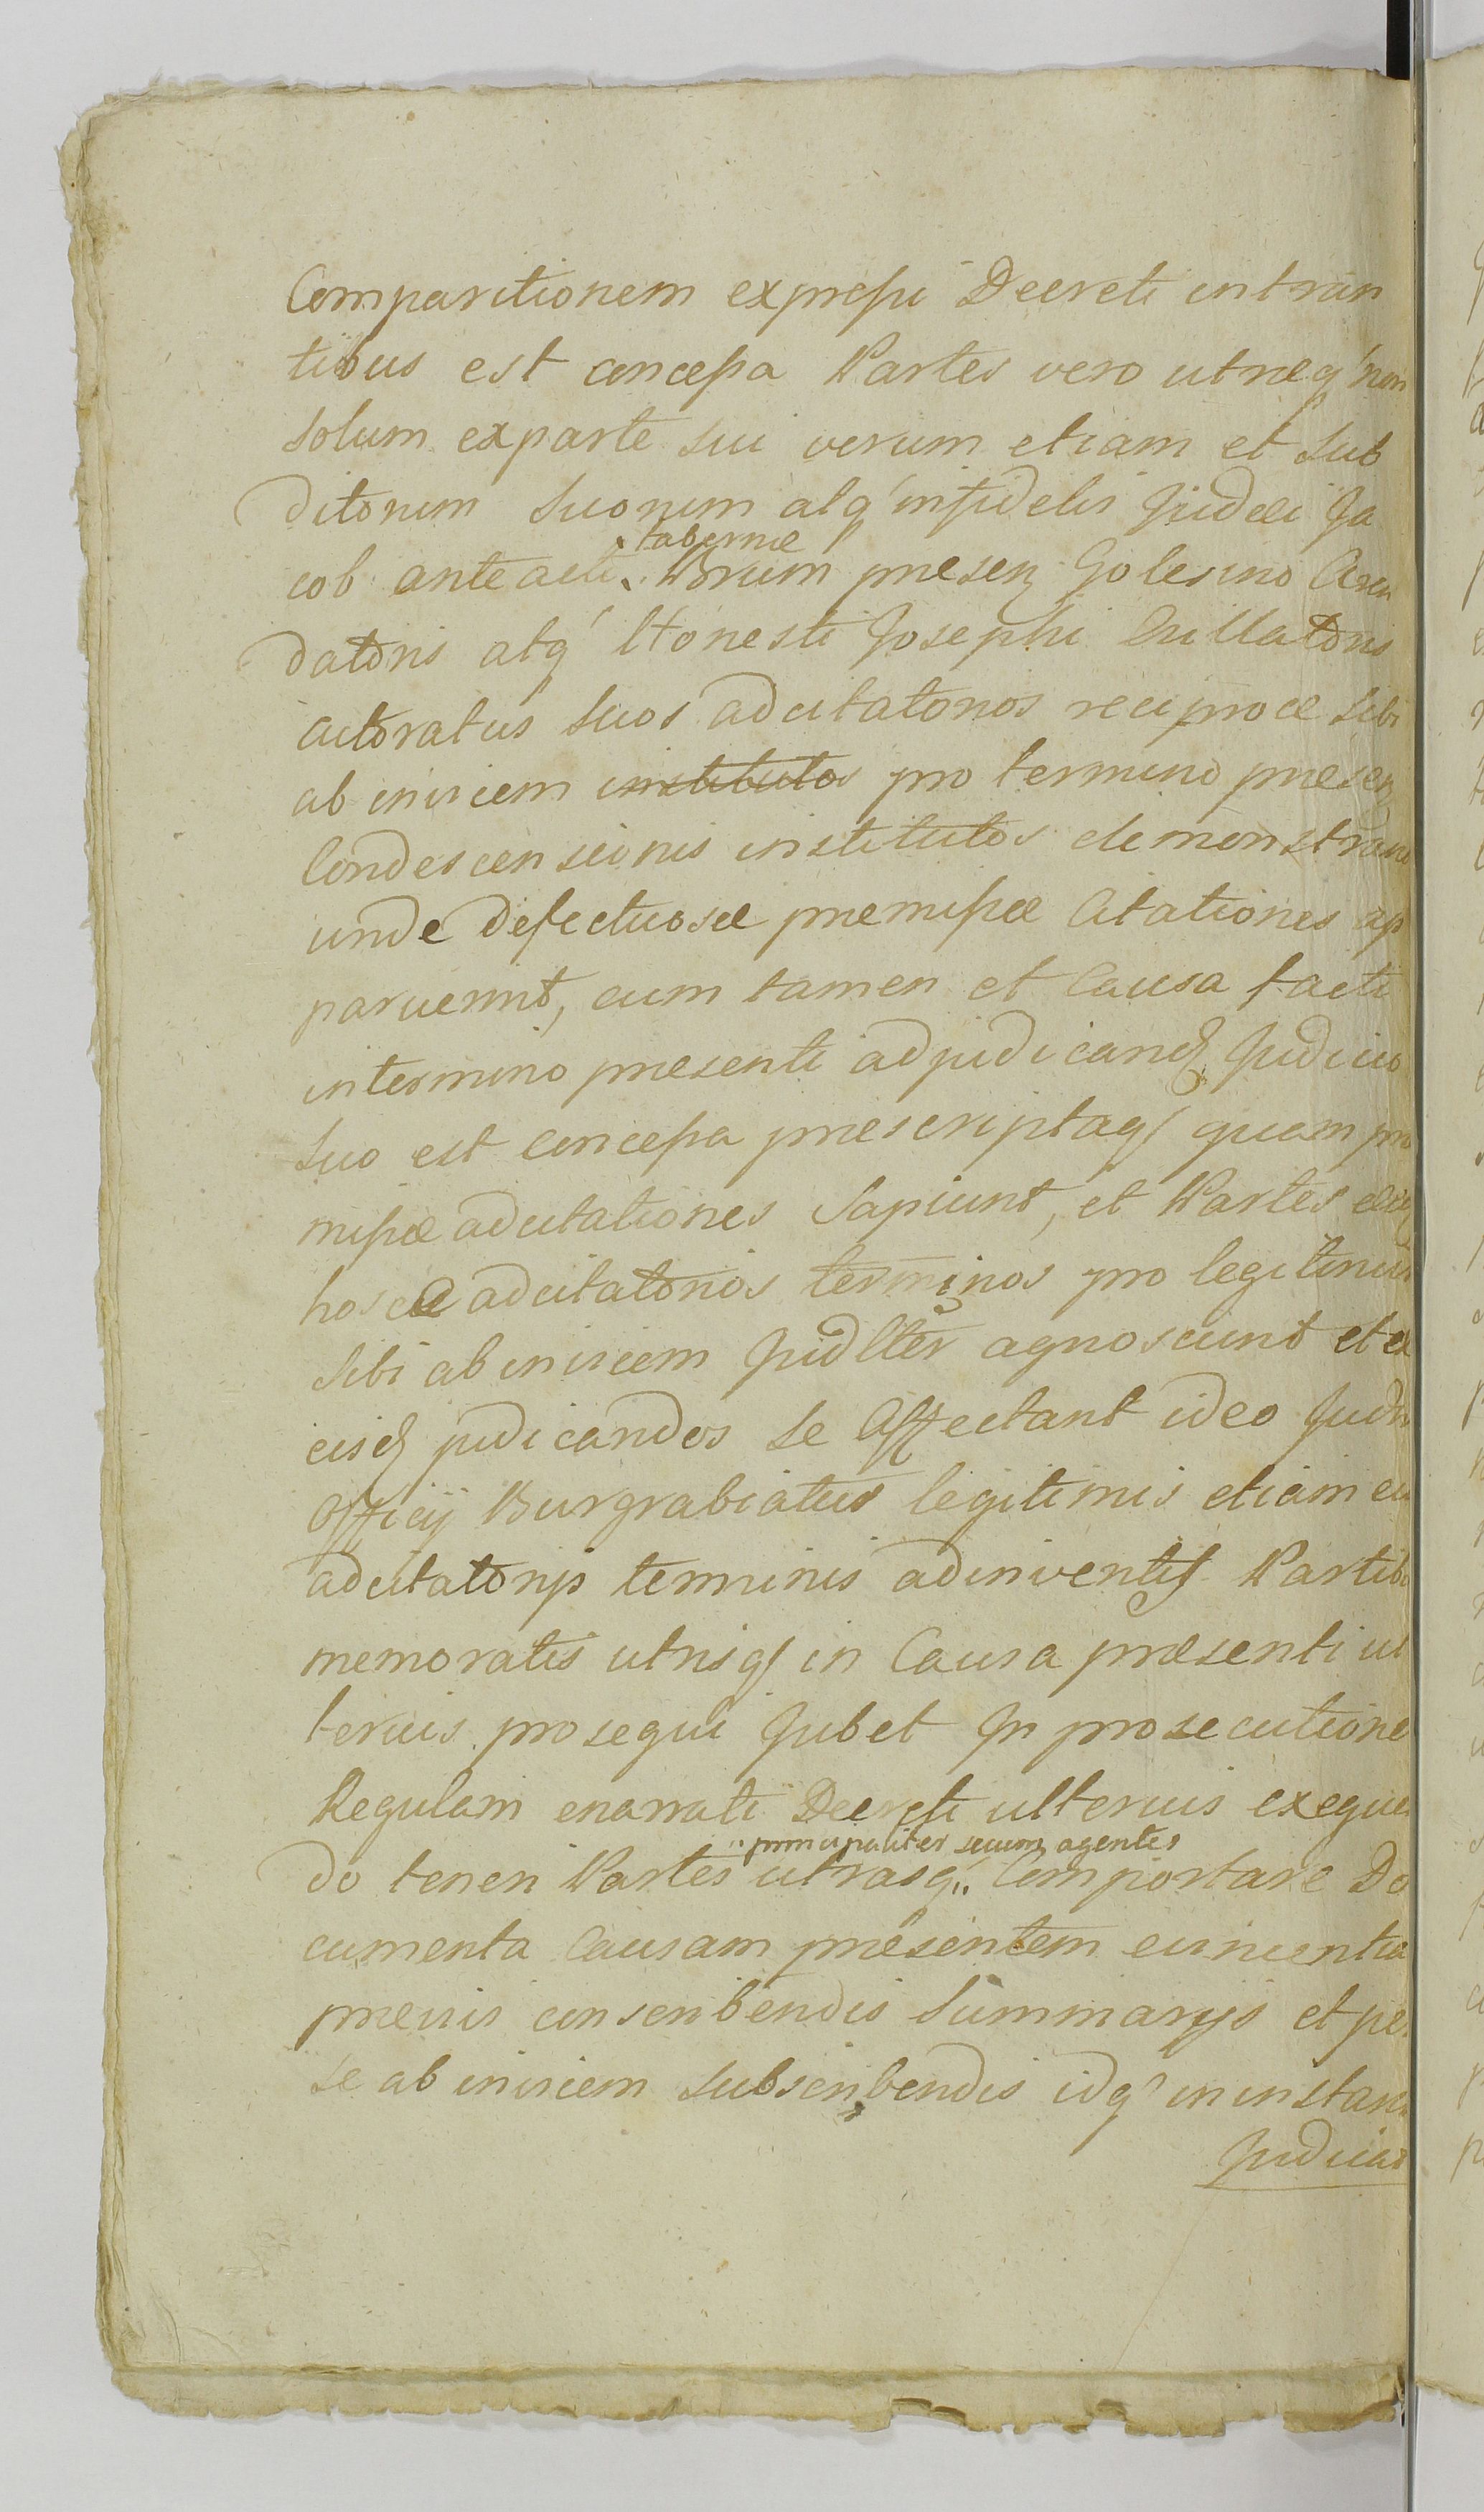 Comparitionem expressi Decreti intran
tibus est concessa Partes vero utraeq' non
solum ex parte sui verum etiam et Sub
ditorum Suorum atq' infidelis Judaei Ja
cob anteacti tabernae Brum praesen Golesino Aren
datoris atq' Honesti Josephi
actoratus suos adcitatorios reciproce sibi
ab invicem institutos pro termino praesen
Condescensionis institutos demonstrant
unde defectuosae praemissae Citationes ap
paruerint, cum tamen et Causa facti
in termino praesenti adjudicand Judicio
suo est concessa praescriptaq quam prae
missae adcitationes sapiunt, et Partes
hosce adcitatorios terminos pro legitimis
sibi ab invicem Judlter agnoscunt et ex
eisd judicandos se affectant ideo Judm
Officij Burgrabiatus legitimis etiam
adcitatorijs terminis adinventis Partib
memoratis utrisq in Causa praesenti ul
terius prosequi Jubet In prosecutione
Regulam enarrati Decreti ulterius exequen
do teneri Partes utrasq' principaliter secum agentes Comportare Do
cumenta Causam praesentem evincentia
praevis conscribendis Summarijs et per
se ab invicem subscribendis idq' in instan
Judicio